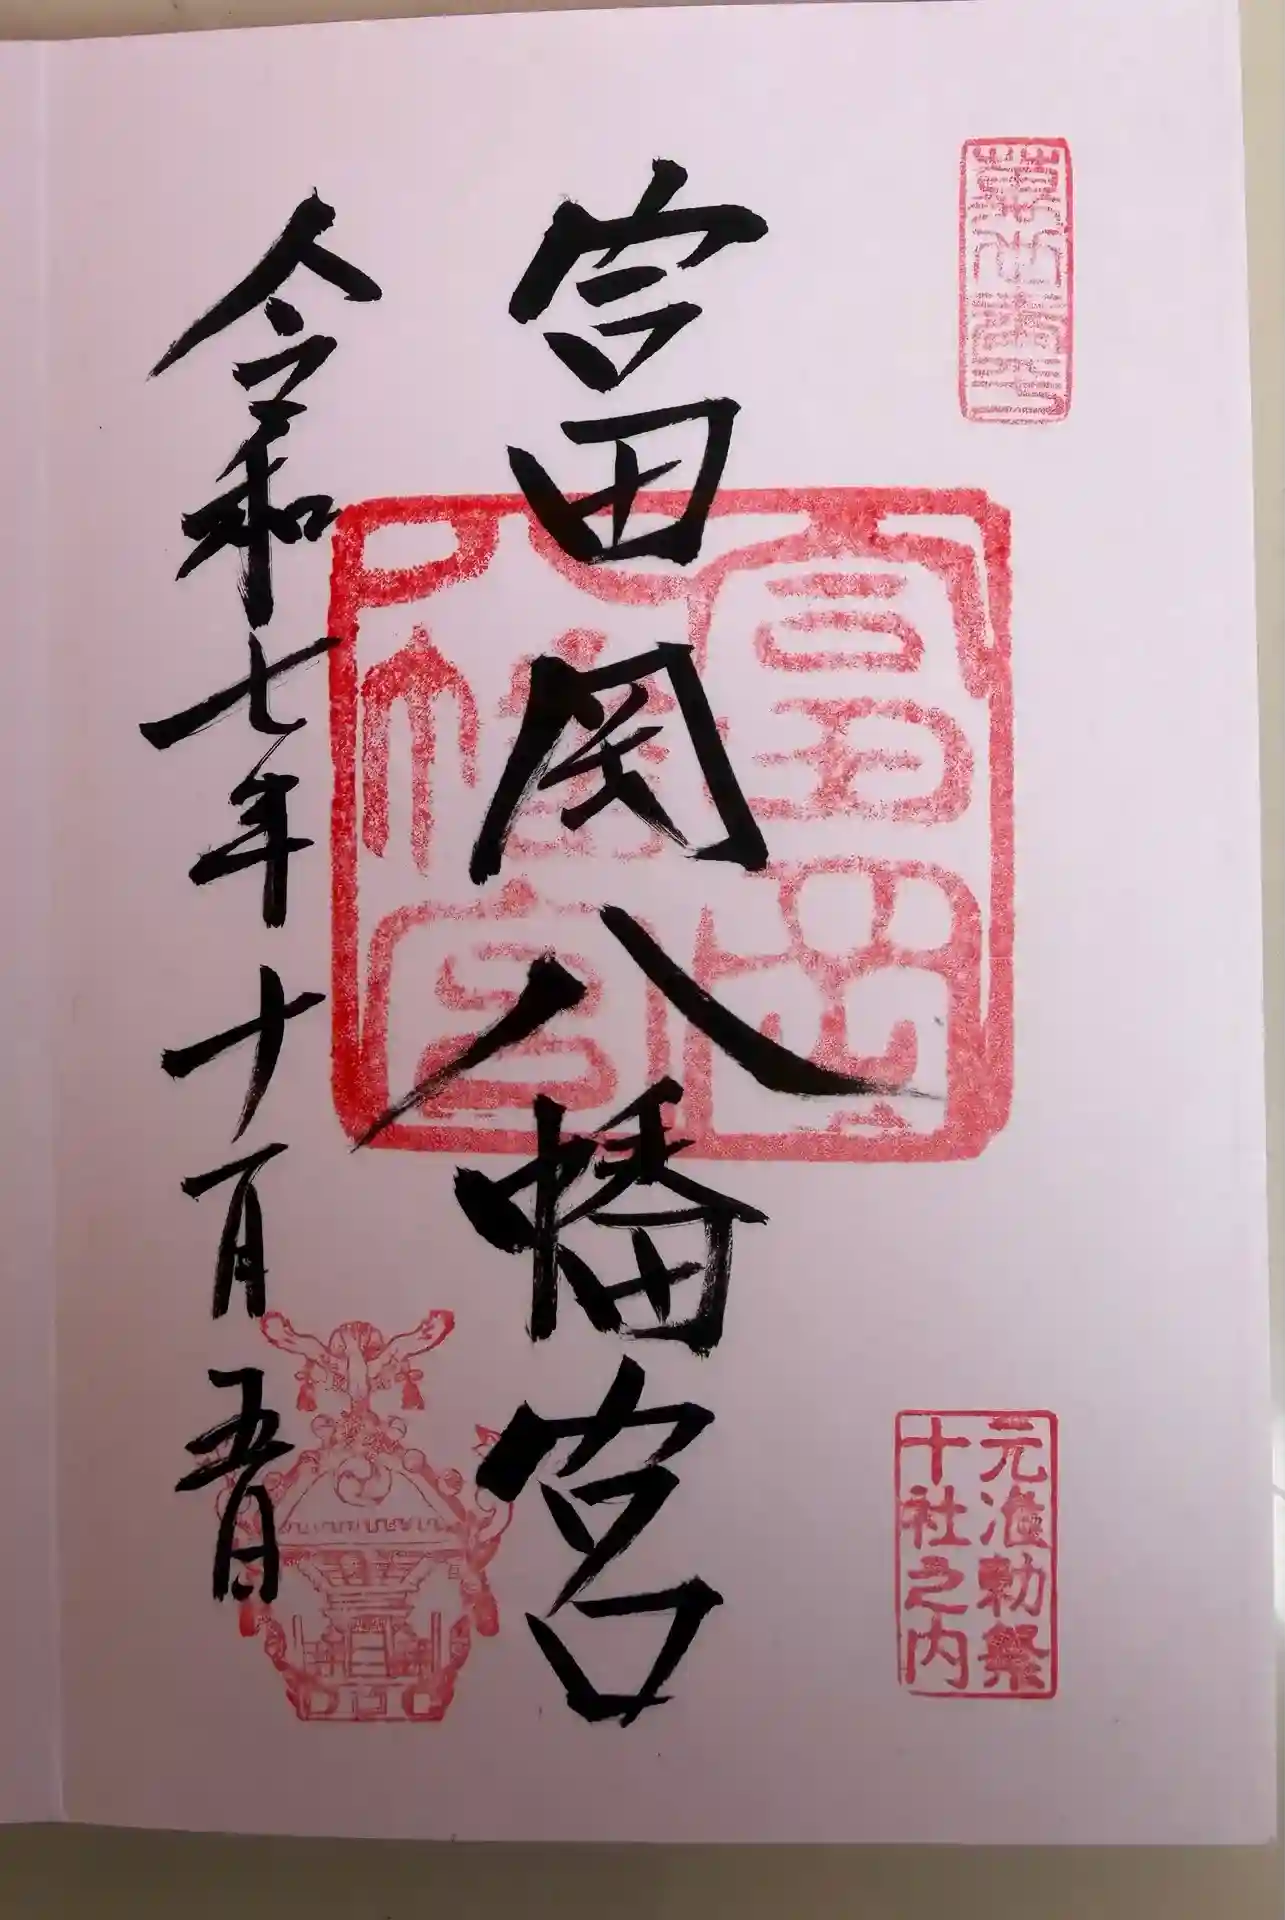 元准勅祭
十社之内
富岡八幡宮
富岡
八幡宮
令和七年十月五日